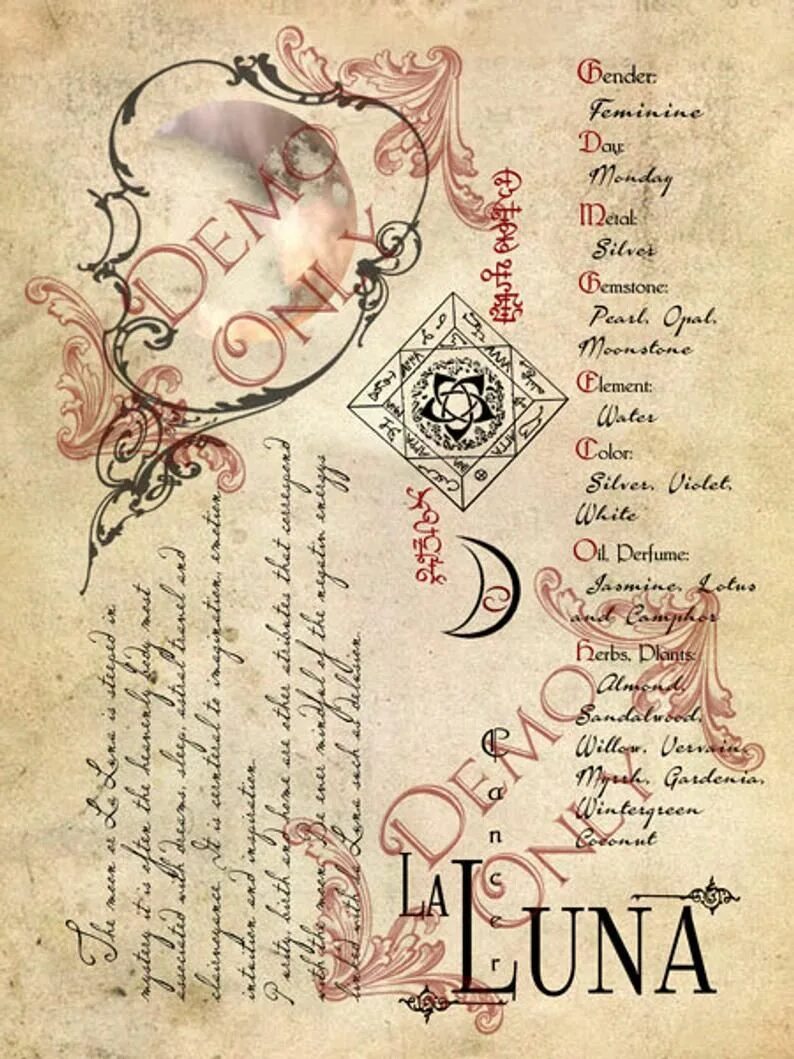 Gender:
Feminine
Day:
Monday
Metal:
Silver
Gemstone:
Pearl, Opal,
Moonstone
Element:
Water
Color:
Silver, Violet,
White
Oil, Perfume:
Jasmine, Lotus
and Camphor
Herbs, Plants:
Almond,
Sandalwood,
Willow, Vervain,
Myrrh, Gardenia,
Wintergreen
Coconut
DEMO
ONLY
The moon or La Luna is steeped in
mystery it is often the heavenly body most
associated with dreams, sleep, astral travel and
clairvoyance. It is centeral to imagination, emotion,
intuition and inspiration.
Purity, birth and home are other atributes that correspond
with the moon. Be ever mindful of the negatin energys
linked with La Luna such as delusion.
DEMO
ONLY
Cancer
LA LUNA